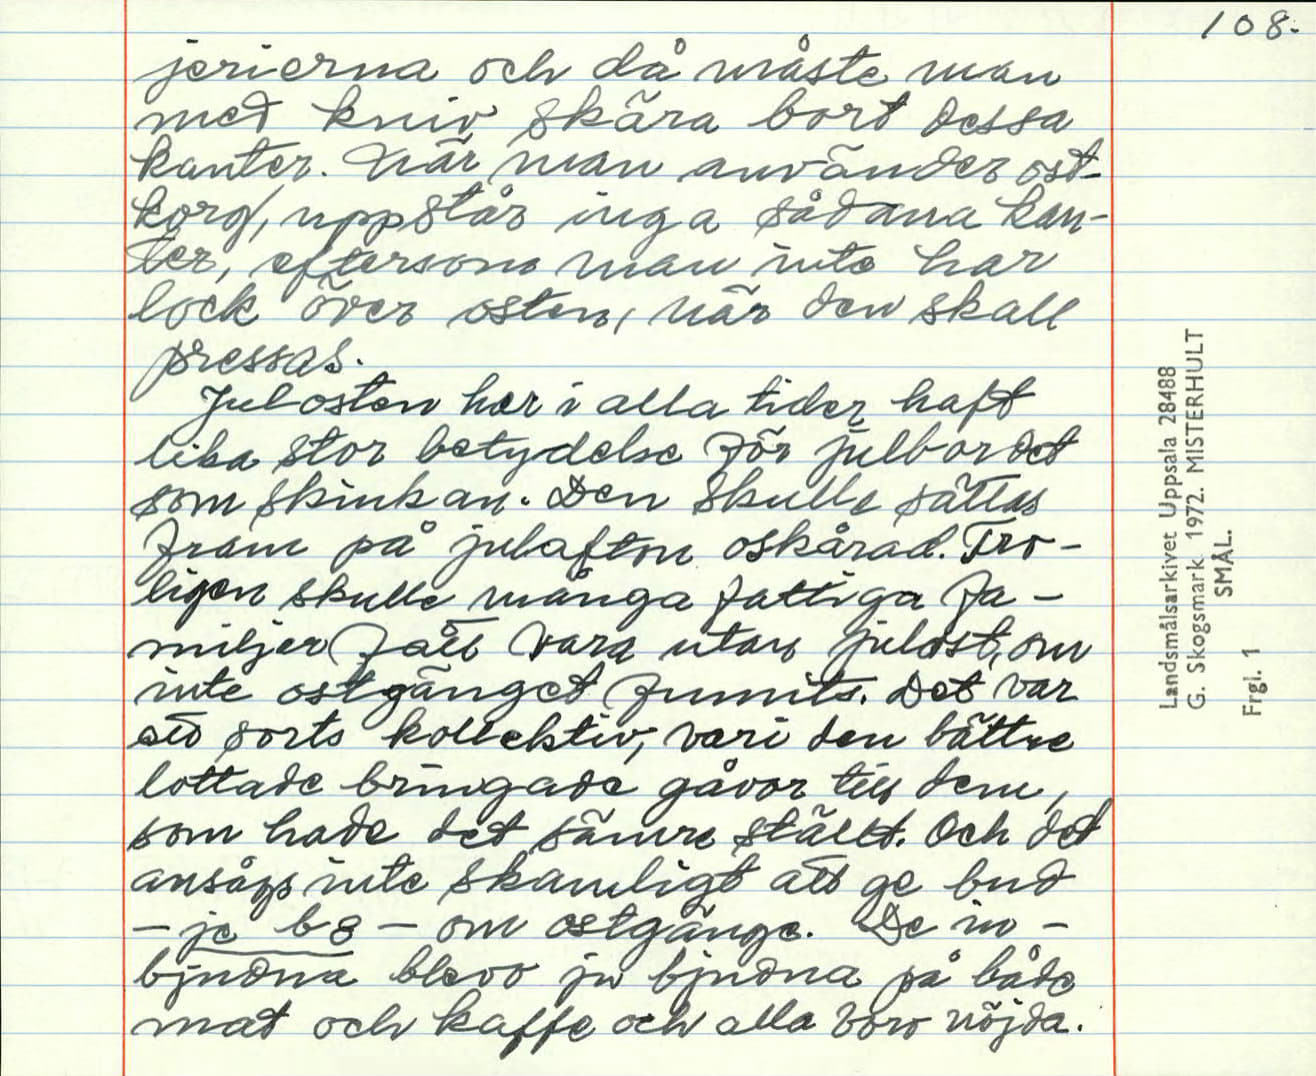 108.
jerierna och då måste man
med kniv skära bort dessa
kanter. När man använder ost-
korg, uppstår inga sådana kan-
ter, eftersom man inte har
lock över osten, när den skall
pressas.
Julosten har i alla tider haft
lika stor betydelse för julbordet
som skinkan. Den skulle sättas
fram på julafton oskårad. Tro-
ligen skulle många fattiga fa-
miljer fått vara utan julost, om
inte ostgänget funnits. Det var
ett sorts kollektiv, vari den bättre
lottade bringade gåvor till dem,
som hade det sämre ställt. Och det
ansågs inte skamligt att ge bud
- je b8 - om ostgänge. De in-
bjudna blevo ju bjudna på både
mat och kaffe och alla voro nöjda.
Landsmålsarkivet Uppsala 28488
G. Skogsmark 1972. MISTERHULT
SMÅL.
Frgl. 1